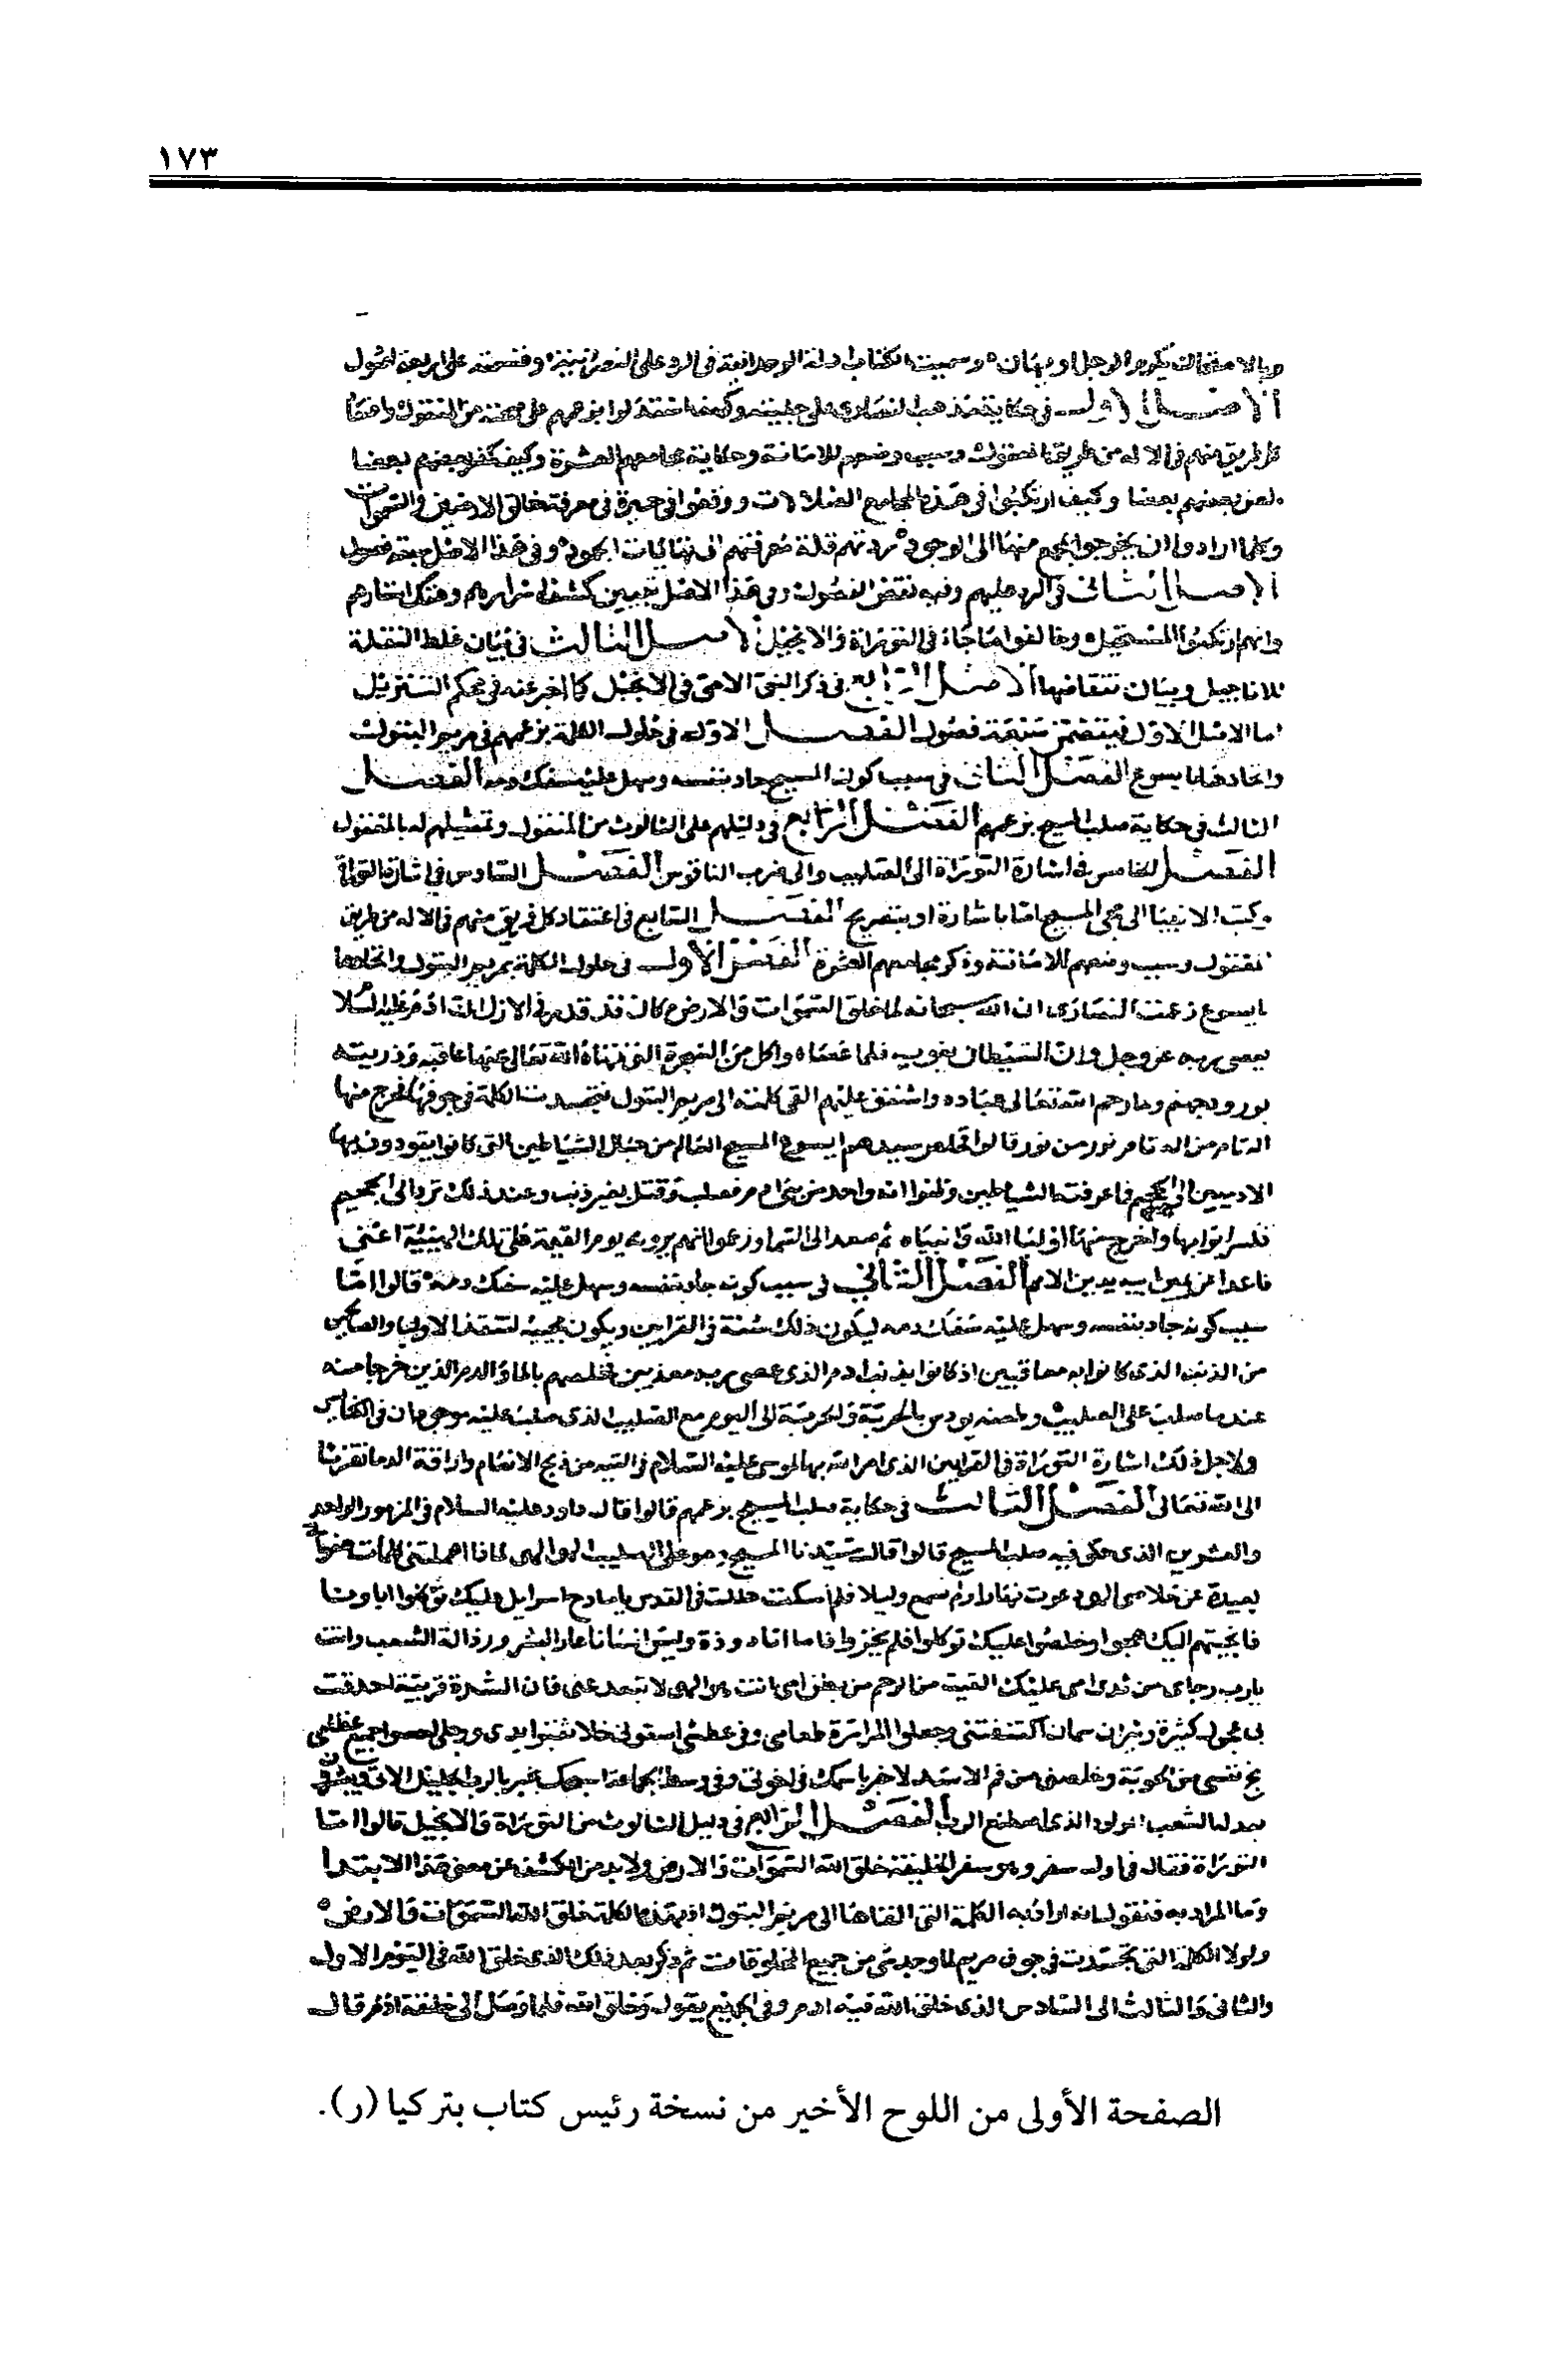 ١٧٣
وبالامتحان يكرم الرجل او يهان وسميت الكتاب ادلة الوحدانية في الرد على النصرانية وقسمته على اربعة اصول
الاصل الاول في حكاية مذهب النصارى على جليته وكيف اعتقدوا بزعمهم على صحته من المنقول واعتقاد
كل فريق منهم في الاله من طريق المعقول وسبب وضعهم للامانة وحكاية مجامعهم العشرة وكيف كفر بعضهم بعضا
ولعن بعضهم بعضا وكيف ارتكبوا في هذه المجامع الضلالات ووقفوا في حيرة في معرفة خالق الارضين والسموات
وكلما ارادوا ان يخرجوا بجهلهم منها الى الوجود ردتهم قلة معرفتهم الى نهايات الجحود وفي هذا الاصل سبعة فصول
الاصل الثاني في الرد عليهم وفيه نقض الفصول وفي هذا الاصل تبيين كشف اسرارهم وهتك استارهم
وانهم ارتكبوا المستحيل وخالفوا ما جاء في التوراة والانجيل الاصل الثالث في بيان غلط النقلة
للاناجيل وبيان تناقضها الاصل الرابع في ذكر النبي الامي في الانجيل كما اخبر عنه في محكم التنزيل
اما الاصل الاول فيتضمن سبعة فصول الفصل الاول في حلول الكلمة بزعمهم في مريم البتول
واتحادها بايسوع الفصل الثاني في سبب كون المسيح جاد بنفسه وسهل عليه سفك دمه الفصل
الثالث في حكاية صلب المسيح بزعمهم الفصل الرابع في دليلهم على الثالوث من المنقول وتمثيلهم له بالمعقول
الفصل الخامس في اشارة التوراة الى الصليب والى ضرب الناقوس الفصل السادس في اشارة التوراة
وكتب الانبيا الى مجي المسيح اما باشارة او بتصريح الفصل السابع في اعتقاد كل فريق منهم في الاله من طريق
المعقول وسبب وضعهم للامانة وذكر مجامعهم العشرة الفصل الاول في حلول الكلمة بمريم البتول واتحادها
بايسوع زعمت النصارى ان الله سبحانه لما خلق السموات والارض كان قد قدر في الازل ان ادم عليه السلام
يعصي ربه عز وجل وان الشيطان يغويه فلما عصاه واكل من الشجرة التي نهاه الله تعالى عنها عاقبه وذريته
بورود جهنم ولما رحم الله تعالى عباده واشفق عليهم القى كلمته الى مريم البتول فتجسدت الكلمة في جوفها فخرج منها
اله تام من اله تام نور من نور قالوا فخلص سيدهم ايسوع المسيح العالم من حبال الشياطين التي كانوا يقودون بها
الادميين الى الجحيم فما عرفته الشياطين وظنوا انه واحد من بني ادم فصلب وقتل بغير ذنب وعند ذلك نزل الى الجحيم
فكسر ابوابها واخرج منها اوليا الله وانبياه ثم صعد الى السما وزعموا انهم يرونه يوم القيمة على تلك الهيئة اعني
قاعدا عن يمين ابيه يدين الامم الفصل الثاني في سبب كونه جاد بنفسه وسهل عليه سفك دمه قالوا اما
سبب كونه جاد بنفسه وسهل عليه سفك دمه ليكون ذلك سنة في القرابين ويكون مجيئه لتنقذ الاوليا والصالحين
من الذنب الذي كانوا به معاقبين اذ كانوا بذنب ادم الذي عصى ربه معذبين فخلصهم بالماء والدم الذين خرجا منه
عندما صلب على الصليب وطعنه بودس بالحربة والحربة الى اليوم مع الصليب الذي صلب عليه موجودان في الكنايس
ولاجل ذلك اشارة التوراة في القرابين الذي امر الله بها لموسى عليه السلام في التيه من ذبح الانعام واراقة الدما تقربا
الى الله تعالى الفصل الثالث في حكاية صلب المسيح بزعمهم قالوا قال داود عليه السلام في المزمور الواحد
والعشرون الذي حكى فيه صلب المسيح قالوا قال سيدنا المسيح وهو على الصليب الهي الهي لماذا اهملتني كلمات هفواتي
بعيدة عن خلاصي الهي دعوت نهارا ولم تسمع وليلا فلم اسكت حللت في القدس يا مادح اسرايل عليك توكلوا اباونا
فانجيتهم اليك هجبوا وخلصوا عليك توكلوا فلم يخزوا فاما انا دودة وليس انسانا عار البشر ورذالة الشعب وانت
يارب رجاي من ثدي امي عليك القيت من الرحم من بطن امي انت هو الهي لا تبعد عني فان الشدة قريبة احدقت
بي عجول كثيرة وثيران سمان اكتنفتني وجعلوا المرارة طعامي وفي عطشي اسقوني خلا ثقبوا يدي ورجلي احصوا جميع عظامي
نج نفسي من الحربة وخلصني من فم الاسد لاخبر باسمك في اخوتي وفي وسط الجماعة اسبحك يخبر بالرب الجيل الاتي ويبشرون
بعدله الشعب المولود الذي اصطنع الرب الفصل الرابع في دليل الثالوث من التوراة والانجيل قالوا اما
التوراة فقال في اول سفر وهو سفر الخليقة خلق الله السموات والارض ولا بد من الكشف عن معنى هذا الابتدا
وما المراد به فنقول انه اراد به الكلمة التي القاها الى مريم البتول اذ بهذه الكلمة خلق الله السموات والارض
ولولا الكلمة التي تجسدت في جوف مريم لما وجد شي من جميع المخلوقات ثم ذكر بعد ذلك الذي خلق الله في اليوم الاول
والثاني والثالث الى السادس الذي خلق الله فيه ادم وفي الجميع يقول وخلق الله فلما وصل الى خلقة ادم قال
الصفحة الأولى من اللوح الأخير من نسخة رئيس كتاب بتركيا (ر).